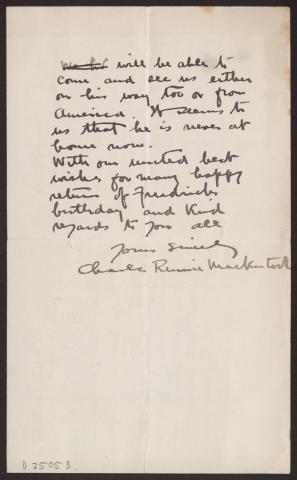 will be able to
come and see us either
on his way too or from
America. It seems to
us that he is never at
home now.
With our united best
wishes for many happy
returns of Friedrichs
birthday and kind
regards to you all
Yours Sincerely
Charles Rennie Mackintosh
D 25053.